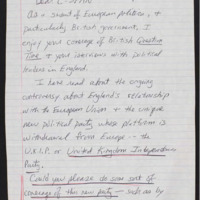 Dear C-SPAN
As a student of European politics, &
particularly British government, I
enjoy your coverage of British Question
Time & your interviews with political
leaders in England.
I have read about the ongoing
controversy about England's relationship
with the European Union & the unique
new political party whose platform is
withdrawal from Europe -- the
U.K.I.P. or United Kingdom Independence
Party.
Could you please do some sort of
coverage of this new party -- such as by